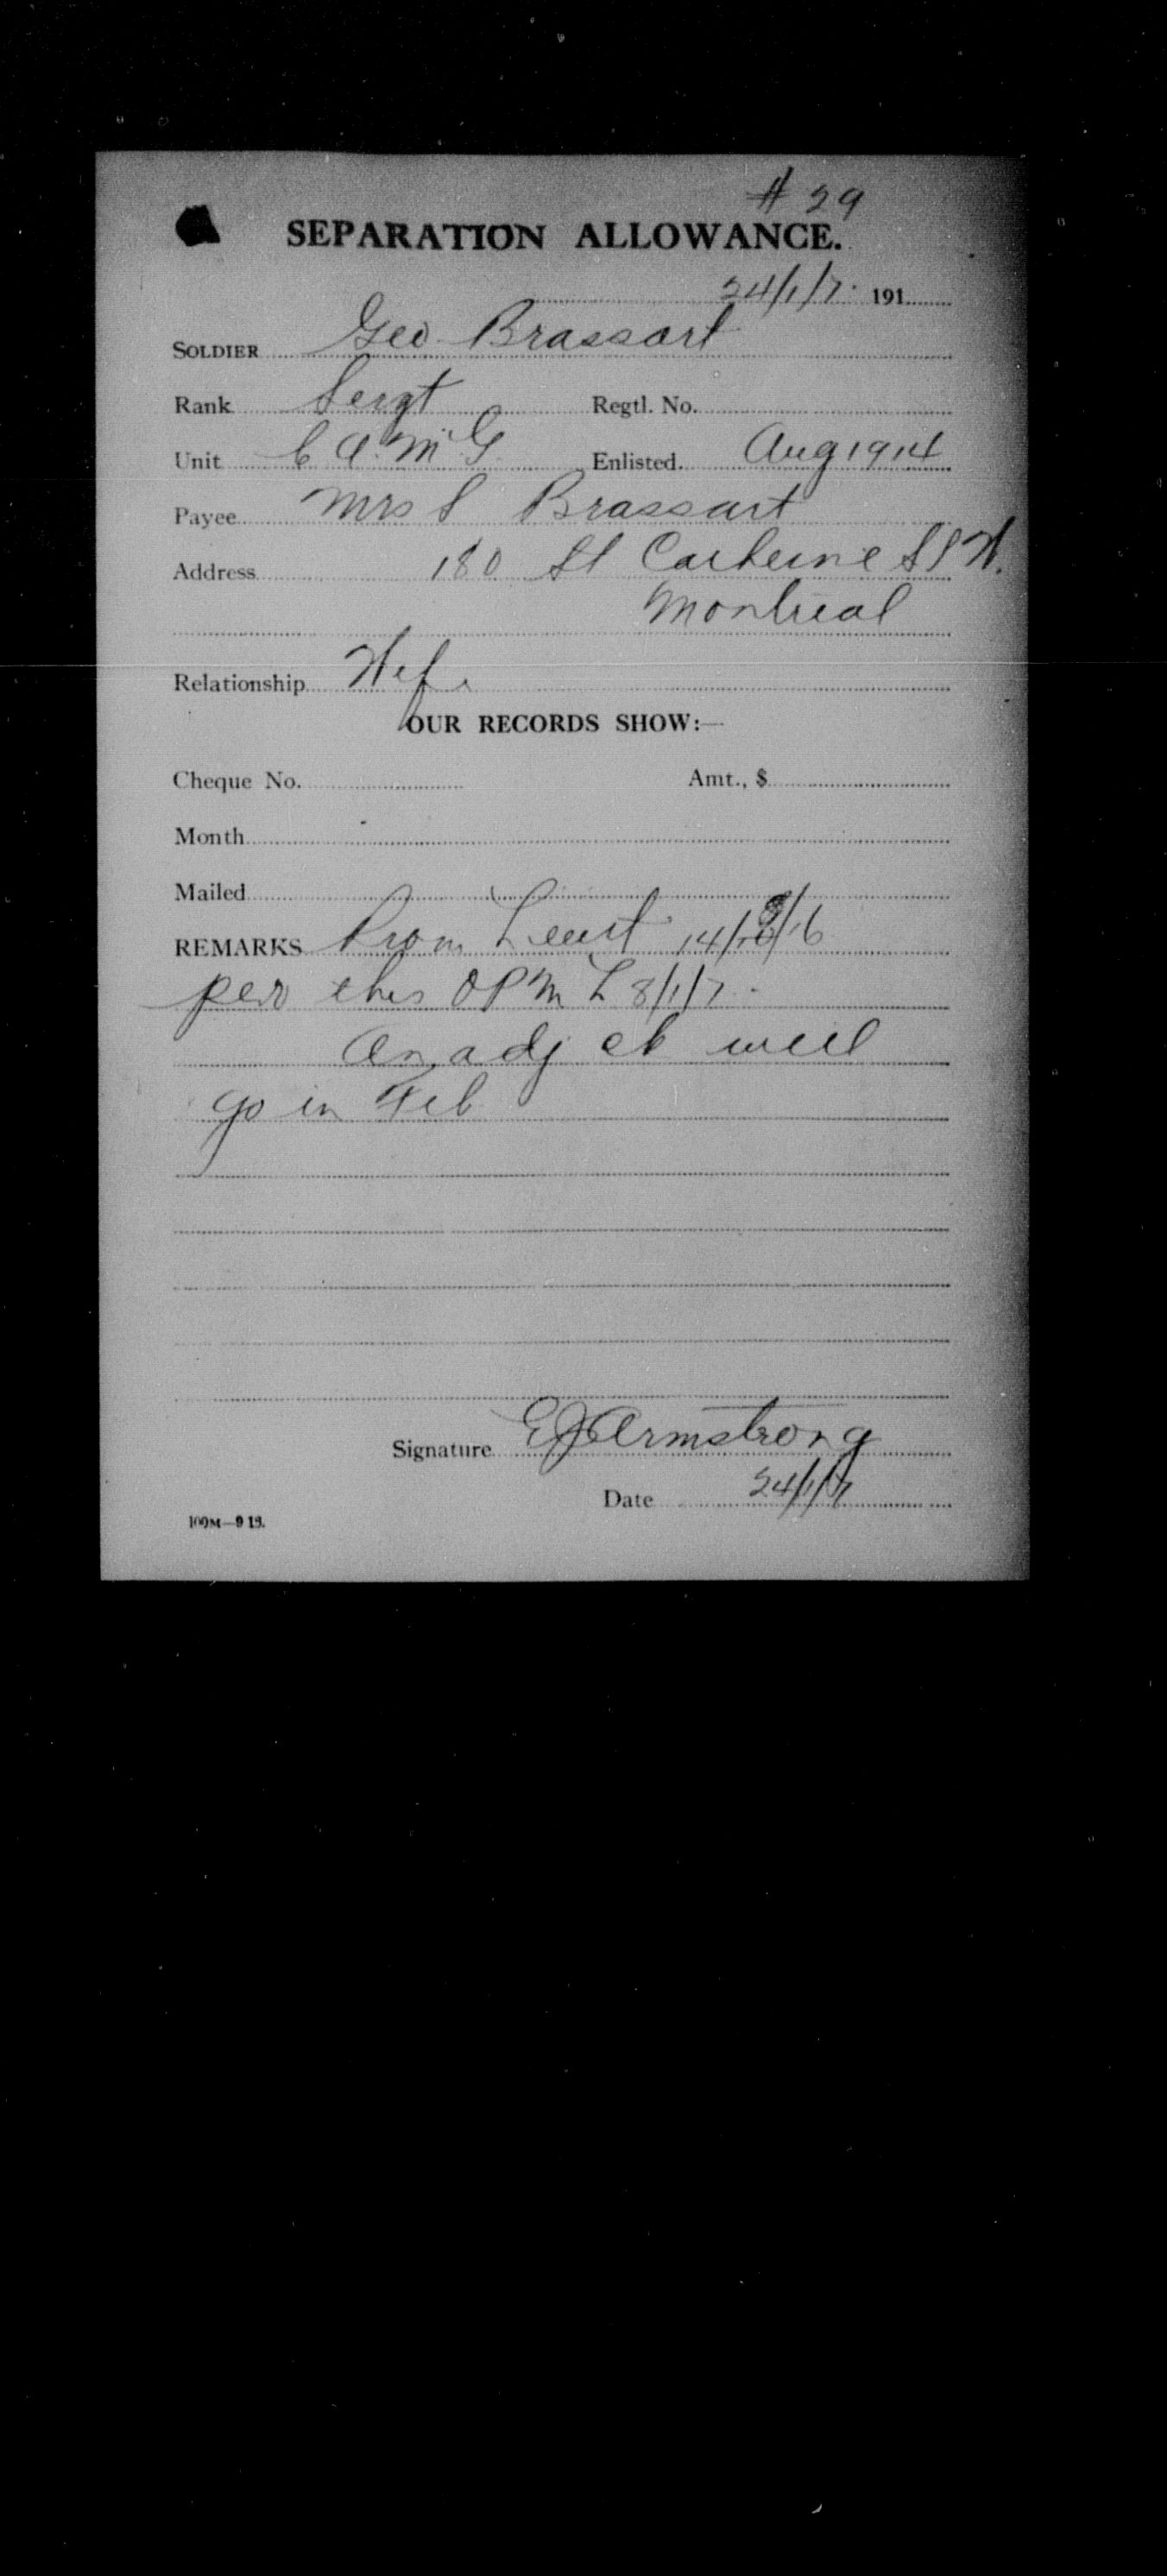 # 29
SEPARATION ALLOWANCE.
24/1/7. 191
SOLDIER Geo Brassart
Rank Sergt Regtl. No.
Unit C A M G Enlisted. Aug 1914
Payee Mrs S Brassart
Address 180 St Catherine St W.
Montreal
Relationship Wife
OUR RECORDS SHOW:—
Cheque No. Amt., $
Month
Mailed
REMARKS Prom Lieut 14/ /16
per ches O P M L 8/1/7.
An adj ck will
go in Feb
Signature E J Armstrong
Date 24/1/17
100M—9 15.